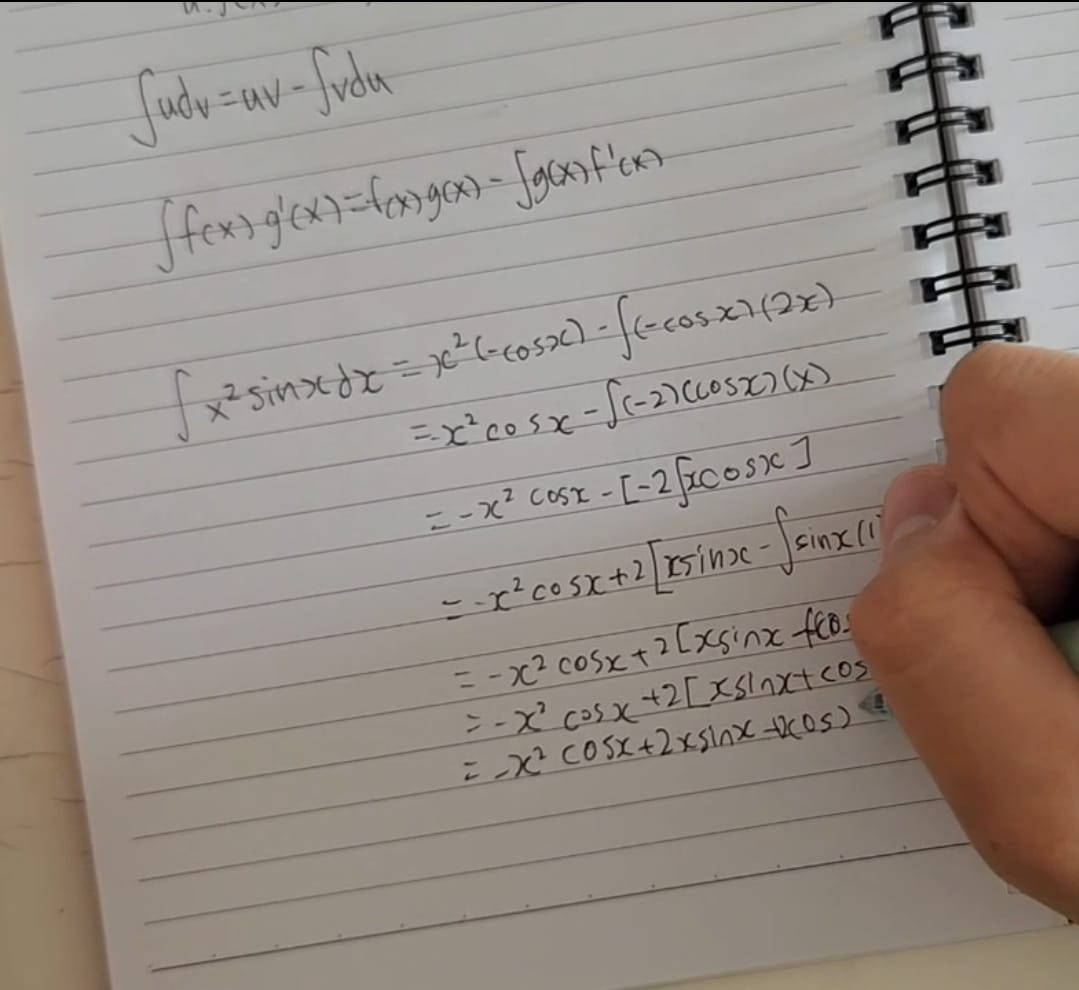 ∫udv=uv-∫vdu
∫f(x)g'(x)=f(x)g(x)-∫g(x)f'(x)
∫x²sinxdx=x²(-cosx)-∫(-cosx)(2x)
=-x²cosx-∫(-2)(cosx)(x)
=-x² cosx-[-2∫xcosx]
=-x²cosx+2[xsinx-∫sinx(1
=-x² cosx+2[xsinx
=-x² cosx+2[xsinx+cos
=-x² cosx+2xsinx+2cos